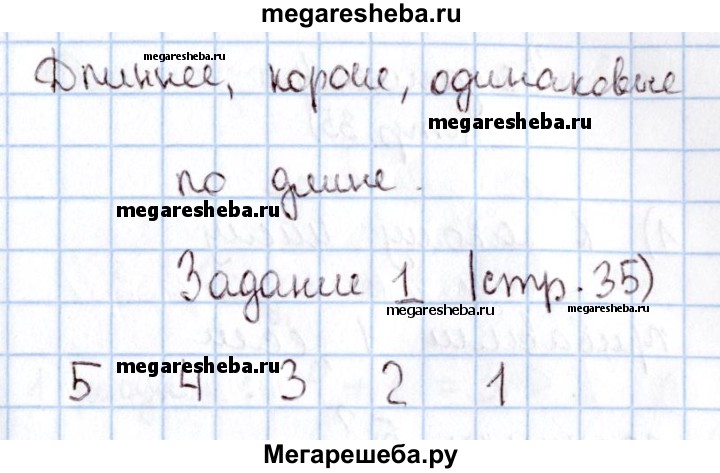 megaresheba.ru
megaresheba.ru
Длиннее, короче, одинаковые
megaresheba.ru
по длине.
megaresheba.ru
Задание 1 (стр. 35)
megaresheba.ru
megaresheba.ru
megaresheba.ru
5 4 3 2 1
Мегарешеба.ру